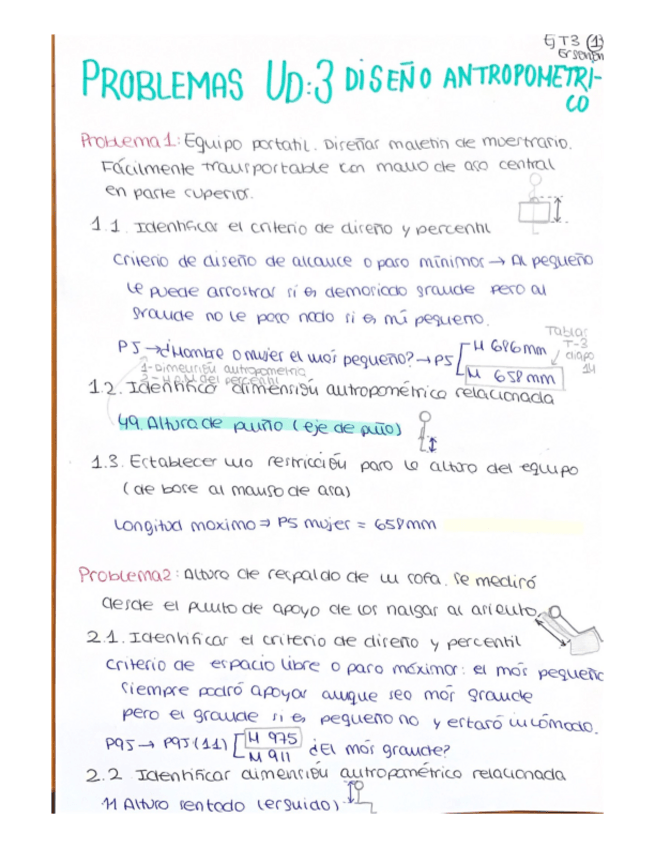 EJT3 (1)
Ersonon
PROBLEMAS UD:3 DISEÑO ANTROPOMETRI-
CO
Problema 1: Equipo portatil. Diseñar maletín de muestrario.
Fácilmente transportable con mano de asa central
en parte superior.
1.1. Identificar el criterio de diseño y percentil
Criterio de diseño de alcance o para mínimos → Al pequeño
le puede arrostrar si es demasiado grande pero al
grande no le pasa nada si es mú pequeño.
P5 → ¿Hombre o mujer el más pequeño? → P5 [ H 686 mm
M 658 mm
Tablas
T-3
diapo
14
1- Dimensión autropometria
1.2. Identifica dimensión autropométrica relacionada
49. Altura de puño (eje de puño)
1.3. Establecer una restricción para la altura del equipo
(de base al manso de asa)
Longitud maximo ⇒ P5 mujer = 658mm
Problema2: Altura de respaldo de un sofa. Se medirá
desde el punto de apoyo de los nalgas al asiento.
2.1. Identificar el criterio de diseño y percentil
Criterio de espacio libre o para máximos: el más pequeño
siempre podrá apoyar aunque sea más grande
pero el grande si es pequeño no y estará incómodo.
P95 → P95 (11) [ H 975
M 911 ¿El más grande?
2.2 Identificar dimensión autropométrica relacionada
11 Altura sentado (erguido)